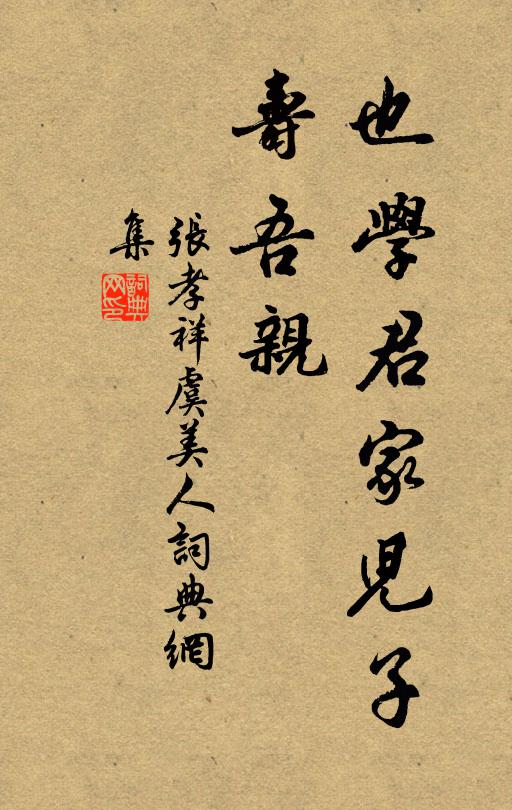 也學君家児子
壽吾親
張孝祥虞美人詞典網
集
詞典
网印